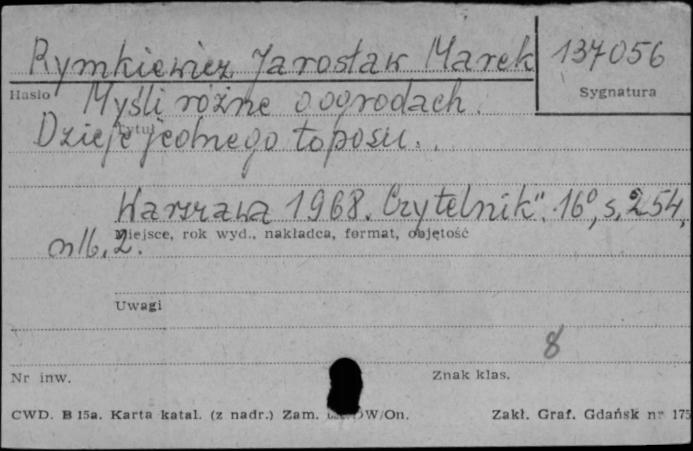 Rymkiewicz Jarosław Marek
137056
Hasło
Sygnatura
Myśli różne o ogrodach.
Tytuł
Dzieje jednego toposu.
Warszawa 1968. Czytelnik". 16°, s. 254,
Miejsce, rok wyd., nakładca, format, objętość
nlb. 2.
Uwagi
8
Nr inw.
Znak klas.
CWD. B 15a. Karta katal. (z nadr.) Zam. W/On.
Zakł. Graf. Gdańsk nr 175